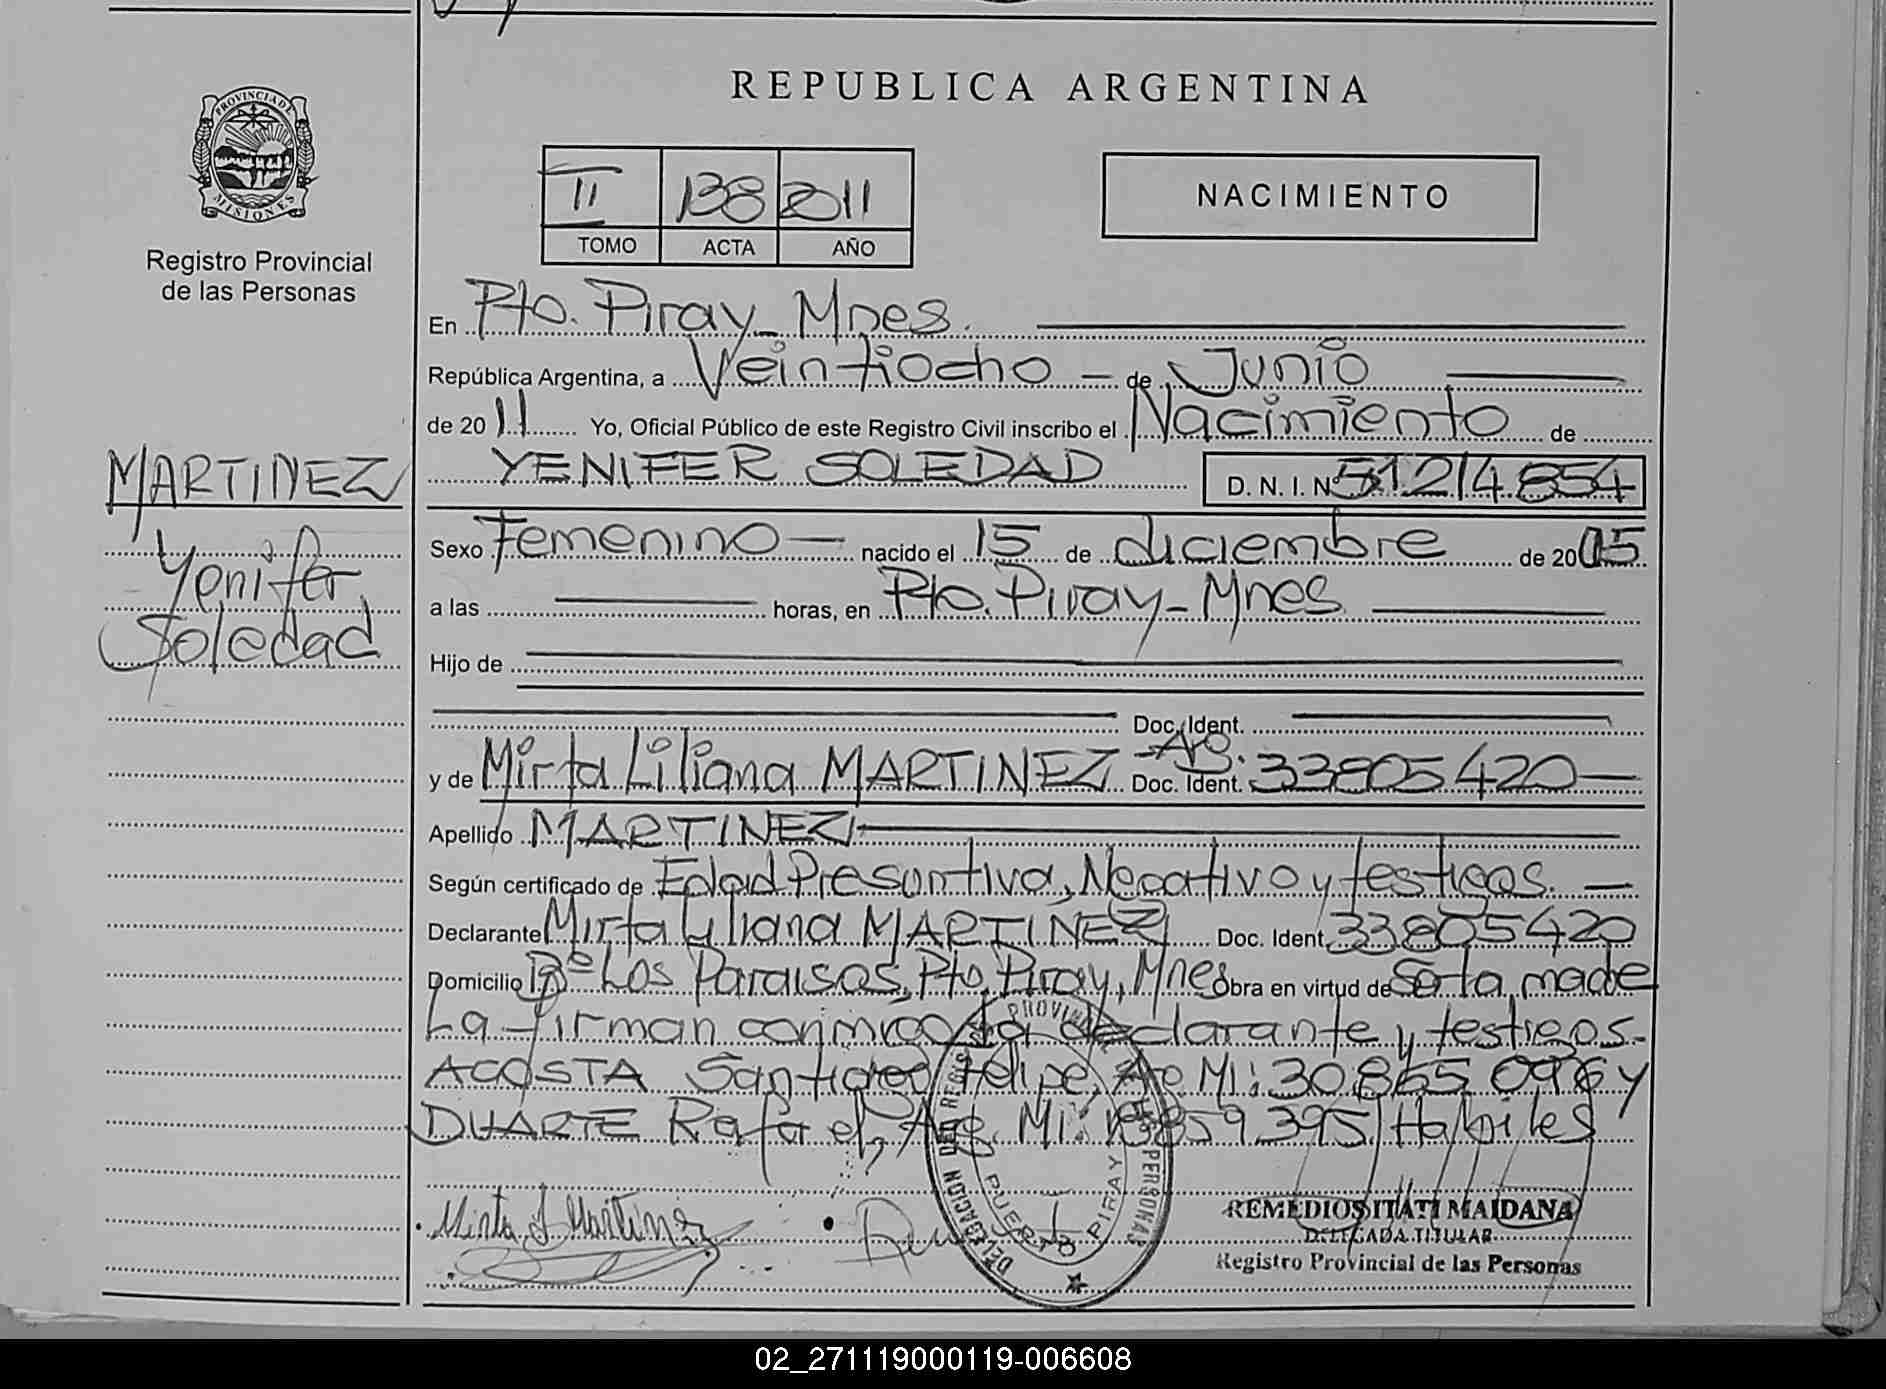 REPUBLICA ARGENTINA
PROVINCIA DE MISIONES
Registro Provincial
de las Personas
II 138 2011
TOMO ACTA AÑO
NACIMIENTO
En Pto. Piray - Mnes.
República Argentina, a Veintiocho - de Junio
de 2011 Yo, Oficial Público de este Registro Civil inscribo el Nacimiento de
YENIFER SOLEDAD D. N. I. Nº 51214854
MARTINEZ
Yenifer
Soledad
Sexo Femenino - nacido el 15 de diciembre de 2005
a las horas, en Pto. Piray - Mnes.
Hijo de
Doc. Ident.
y de Mirta Liliana MARTINEZ Arg. Doc. Ident. 33805420
Apellido MARTINEZ
Según certificado de Edad Presuntiva, Negativo y testigos.
Declarante Mirta Liliana MARTINEZ Doc. Ident. 33805420
Domicilio Bº Los Paraisos, Pto. Piray, Mnes Obra en virtud de
La firman conmigo la declarante y testigos-
ACOSTA Santiago Felipe, Arg MI: 30.865.096 y
DUARTE Rafael, Arg. MI: 13859395 Habiles
Mirta L Martinez
DELEGACION DEL REGISTRO PROVINCIAL DE LAS PERSONAS
PUERTO PIRAY
REMEDIOS ITATI MAIDANA
DELEGADA TITULAR
Registro Provincial de las Personas
02_271119000119-006608